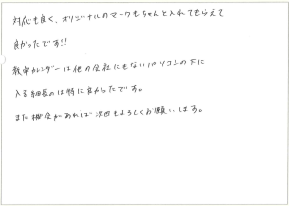 対応も良く、オリジナルのマークもちゃんと入れてもらえて
良かったです!!
卓中カレンダーは他の会社にもないパソコンの下に
入る細長のは特に良かったです。
また機会があれば次回もよろしくお願いします。